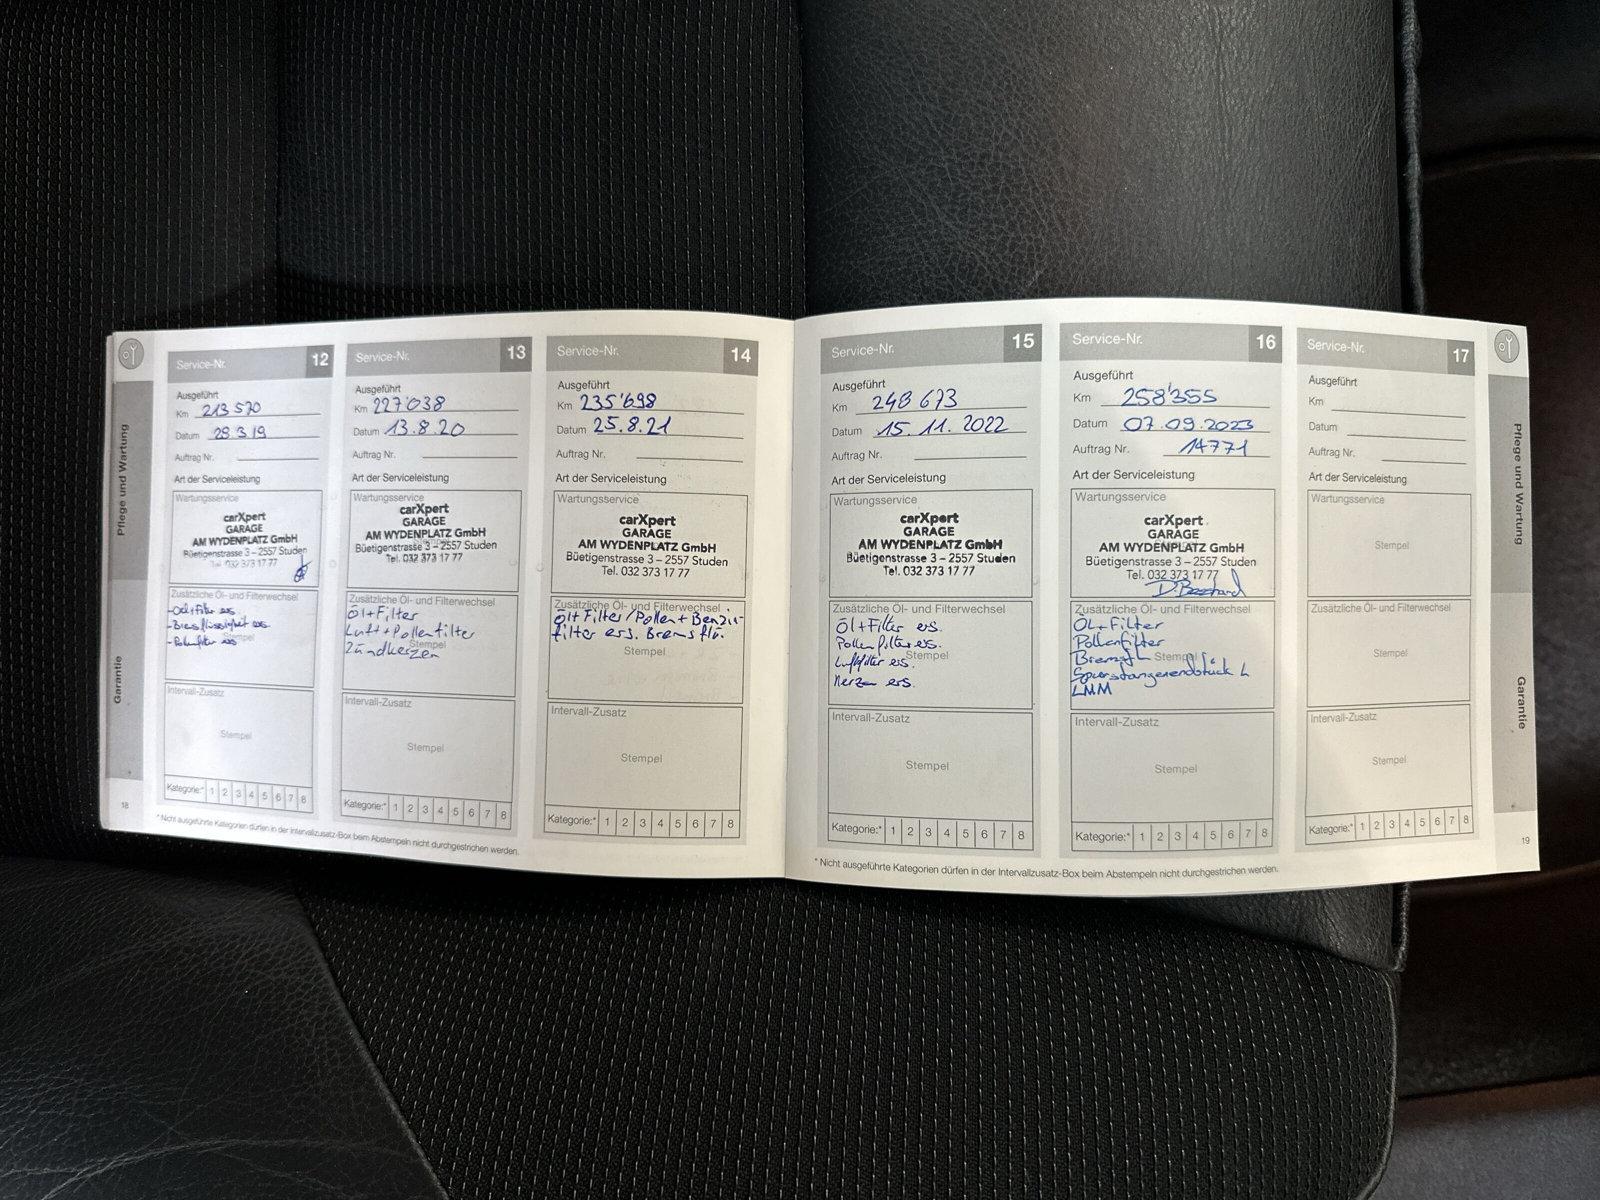 Pflege und Wartung
Garantie
18
Service-Nr. 12
Ausgeführt
Km 213 570
Datum 29 3 19
Auftrag Nr.
Art der Serviceleistung
Wartungsservice
carXpert
GARAGE
AM WYDENPLATZ GmbH
Büetigenstrasse 3 – 2557 Studen
Tel. 032 373 17 77
Zusätzliche Öl- und Filterwechsel
- Oel + Filter ers.
- Bremsflüssigkeit ers.
- Pollenfilter ers
Stempel
Intervall-Zusatz
Stempel
Kategorie:* 1 2 3 4 5 6 7 8
Service-Nr. 13
Ausgeführt
Km 227'038
Datum 13.8.20
Auftrag Nr.
Art der Serviceleistung
Wartungsservice
carXpert
GARAGE
AM WYDENPLATZ GmbH
Büetigenstrasse 3 – 2557 Studen
Tel. 032 373 17 77
Zusätzliche Öl- und Filterwechsel
Öl+Filter
Luft+Pollenfilter
Stempel
Zündkerzen
Intervall-Zusatz
Stempel
Kategorie:* 1 2 3 4 5 6 7 8
Service-Nr. 14
Ausgeführt
Km 235'698
Datum 25.8.21
Auftrag Nr.
Art der Serviceleistung
Wartungsservice
carXpert
GARAGE
AM WYDENPLATZ GmbH
Büetigenstrasse 3 – 2557 Studen
Tel. 032 373 17 77
Zusätzliche Öl- und Filterwechsel
Öl+Filter/Pollen+Benzin-
filter ers. Bremsflü.
Stempel
Intervall-Zusatz
Stempel
Kategorie:* 1 2 3 4 5 6 7 8
* Nicht ausgeführte Kategorien dürfen in der Intervallzusatz-Box beim Abstempeln nicht durchgestrichen werden.
Service-Nr. 15
Ausgeführt
Km 248 673
Datum 15.11.2022
Auftrag Nr.
Art der Serviceleistung
Wartungsservice
carXpert
GARAGE
AM WYDENPLATZ GmbH
Büetigenstrasse 3 – 2557 Studen
Tel. 032 373 17 77
Zusätzliche Öl- und Filterwechsel
Öl+Filter ers.
Pollenfilter ers.
Stempel
Luftfilter ers.
Kerzen ers.
Intervall-Zusatz
Stempel
Kategorie:* 1 2 3 4 5 6 7 8
Service-Nr. 16
Ausgeführt
Km 258'355
Datum 07.09.2023
Auftrag Nr. 14771
Art der Serviceleistung
Wartungsservice
carXpert
GARAGE
AM WYDENPLATZ GmbH
Büetigenstrasse 3 – 2557 Studen
Tel. 032 373 17 77
Zusätzliche Öl- und Filterwechsel
ÖL+Filter
Pollenfilter
Stempel
Spurstangenendstück L
LMM
Intervall-Zusatz
Stempel
Kategorie:* 1 2 3 4 5 6 7 8
Service-Nr. 17
Ausgeführt
Km
Datum
Auftrag Nr.
Art der Serviceleistung
Wartungsservice
Stempel
Zusätzliche Öl- und Filterwechsel
Stempel
Intervall-Zusatz
Stempel
Kategorie:* 1 2 3 4 5 6 7 8
* Nicht ausgeführte Kategorien dürfen in der Intervallzusatz-Box beim Abstempeln nicht durchgestrichen werden.
Pflege und Wartung
Garantie
19